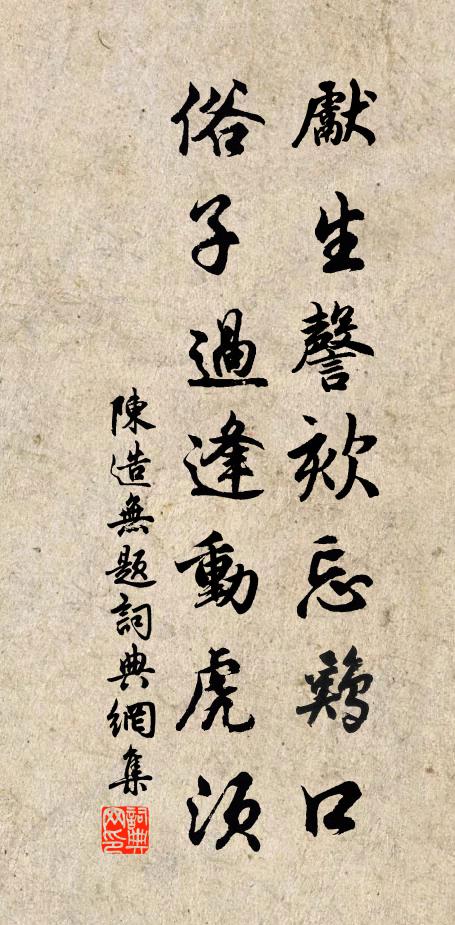 獻生謦欬忘鷄口
俗子過逢動虎須
陳造無題詞典網集
詞典網印